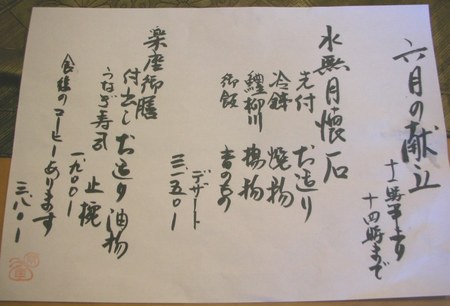 六月の献立
十一時半より
十四時まで
水無月懐石
先付 お造り
冷鉢 焼物
鱧柳川 揚物
御飯 香のもの
デザート
三、一五〇ー
楽座御膳
付出し お造り 油物
うなぎ寿司 止椀
のコーヒーあります